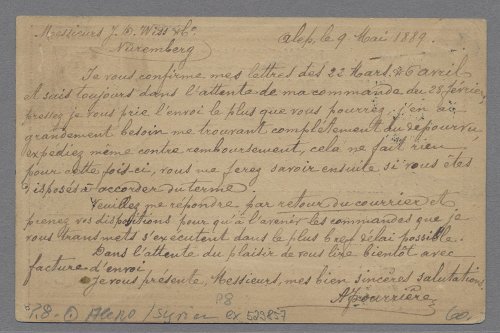 Messieurs J. D. Wiss & Co
Nuremberg
Alep, le 9 Mai 1889.
Je vous confirme mes lettres des 22 Mars & 6 avril
et suis toujours dans l'attente de ma commande du 28 février
pressez je vous prie l'envoi le plus que vous pourrez, j'en ai
grandement besoin me trouvant complètement au dépourvu
expédiez même contre remboursement, cela ne fait rien
pour cette fois-ci, vous me ferez savoir ensuite si vous êtes
disposés à accorder du terme.
Veuillez me répondre par retour du courrier et
prenez vos dispositions pour qu'à l'avenir les commandes que je
vous transmets s'exécutent dans le plus bref délai possible.
Dans l'attente du plaisir de vous lire bientôt avec
facture d'envoi
Je vous présente, Messieurs, mes bien sincères salutations
A. Fourrière
P8
Aleppo / Syrien ex 523857
60.